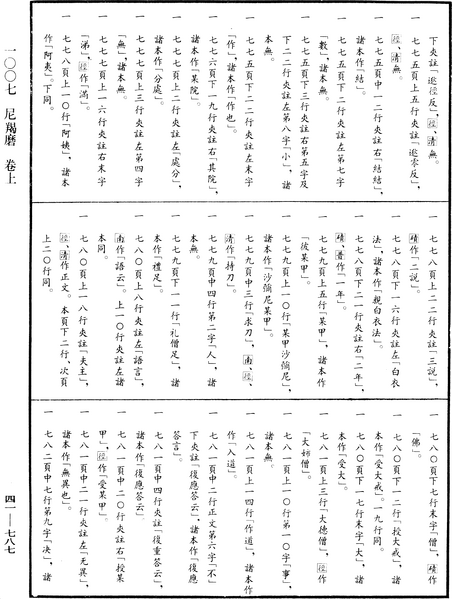 一〇〇七 尼羯磨 卷上
四一——七八七
下夾註「遮徑反」,徑、清無。
一 七七五頁上五行夾註「遮零反」,
徑、清無。
一 七七五頁中一二行夾註右「結結」,
諸本作「結」。
一 七七五頁下二行夾註左第七字
「數」,諸本無。
一 七七五頁下三行夾註右第五字及
下二二行夾註左第八字「小」,諸
本無。
一 七七五頁下二二行夾註左末字
「作」,諸本作「作也」。
一 七七六頁下一九行夾註右「其院」,
諸本作「某院」。
一 七七七頁上二行夾註左「處分」,
諸本作「分處」。
一 七七七頁上三行夾註左第四字
「無」,諸本無。
一 七七七頁上一六行夾註右末字
「涕」,徑作「滿」。
一 七七八頁上一〇行「阿姨」,諸本
作「阿夷」。下同。
一 七七八頁上二二行夾註「三說」,
磧作「二說」。
一 七七八頁下一六行夾註左「白衣
法」,諸本作「親白衣法」。
一 七七八頁下二一行夾註右「二年」,
磧、普作「一年」。
一 七七九頁上五行「某甲」,諸本作
「彼某甲」。
一 七七九頁上一〇行「某甲沙彌尼」,
諸本作「沙彌尼某甲」。
一 七七九頁中三行「求刀」,南、徑、
清作「持刀」。
一 七七九頁中四行第二字「人」,諸
本無。
一 七七九頁下一一行「礼僧足」,諸
本作「禮足」。
一 七八〇頁上八行夾註左「語言」,
南作「語云」。上一〇行夾註左諸
本同。
一 七八〇頁上一八行夾註「夫主」,
徑、清作正文。本頁下二行、次頁
上二〇行同。
一 七八〇頁下七行末字「僧」,磧作
「佛」。
一 七八〇頁下一三行「授大戒」,諸
本作「受大戒」。一九行同。
一 七八〇頁下一七行末字「大」,諸
本作「受大」。
一 七八一頁上三行「大德僧」,徑作
「大姊僧」。
一 七八一頁上一〇行第一〇字「事」,
諸本無。
一 七八一頁上一四行「作道」,諸本作
作「入道」。
一 七八一頁中二行正文第六字「不」
下夾註「後應答云」,諸本作「後應
答言」。
一 七八一頁中四行夾註「後重答云」,
諸本作「後應答云」。
一 七八一頁中二〇行夾註右「授某
甲」,徑作「受某甲」。
一 七八一頁中二一行夾註左「无異」,
諸本作「無異也」。
一 七八二頁中七行第九字「決」,諸